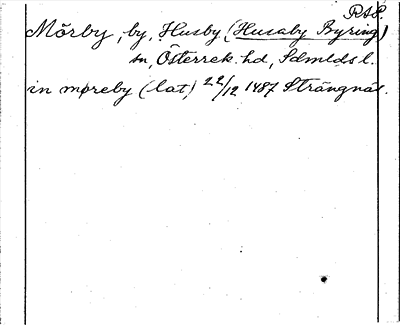 RAP.
Mörby, by, Husby (Husaby Byring)
sn, Österrek. hd, Sdmlds l.
in møreby (lat) 22/12 1487 Strängnäs.